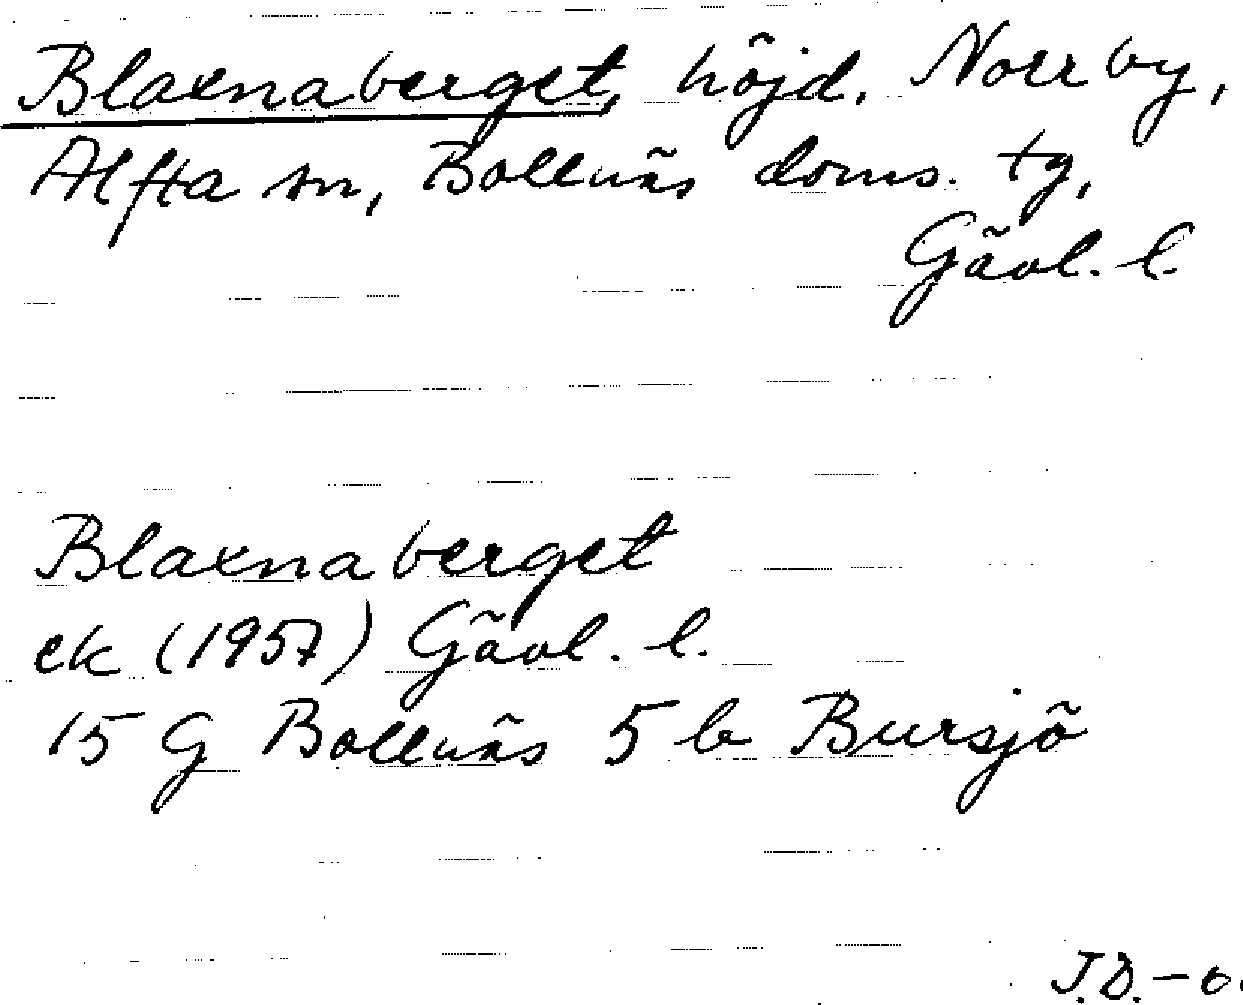 Blaxnaberget, höjd. Norrby,
Alfta sn, Bollnäs doms. tg,
Gävl. l.
Blaxnaberget
ek (1957) Gävl. l.
15 G Bollnäs 5 b Bursjö
J.D.-o.